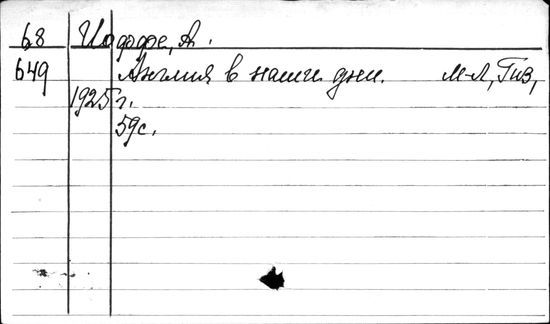 68 Иоффе, А.
649 Англия в наши дни. М-Л, Гиз,
1925 г.
59 с.